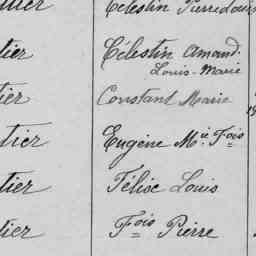 tier Célestin Pierre Louis
tier Célestin Amand
Louis-Marie
tier Constant Marie
tier Eugène M.ie F.ois
tier Félise Louis
tier F.ois Pierre